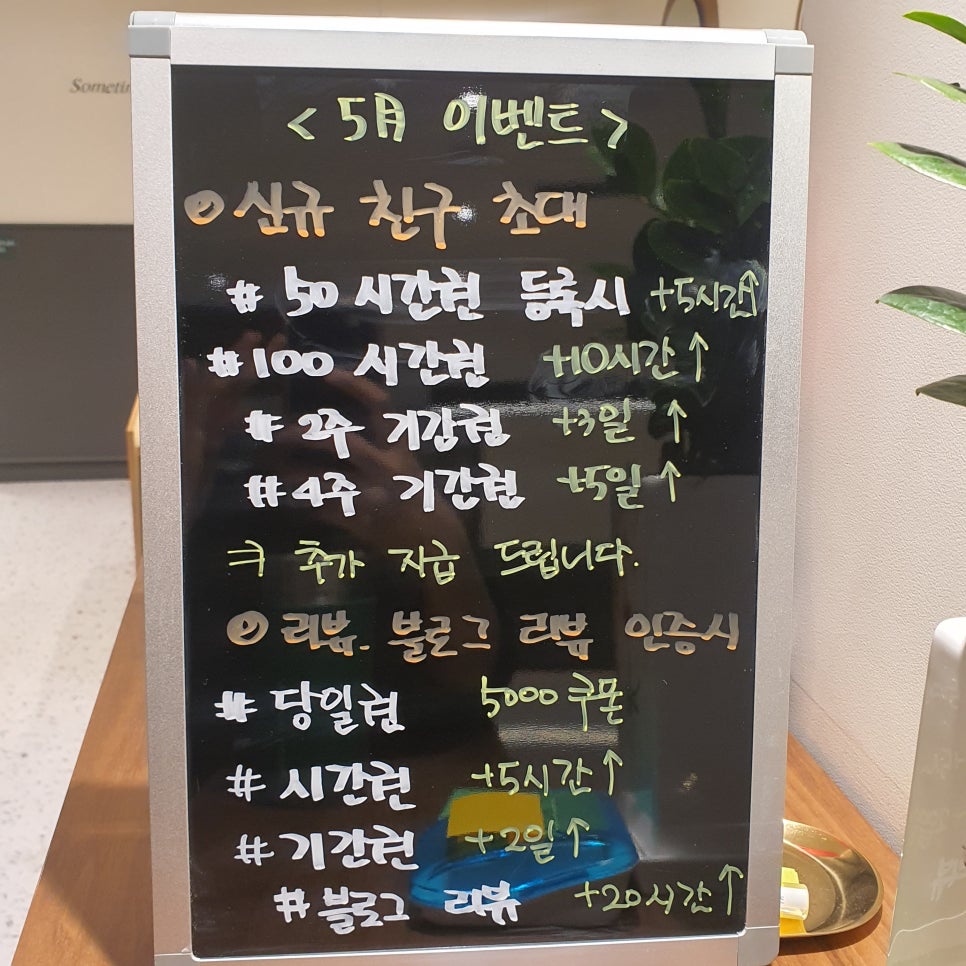 Sometim
< 5月 이벤트 >
신규 친구 초대
# 50 시간권 등록시 +5시간↑
#100 시간권 +10시간↑
# 2주 기간권 +3일 ↑
#4주 기간권 +5일↑
추가 지급 드립니다.
리뷰. 블로그 리뷰 인증시
# 당일권 5000 쿠폰
# 시간권 +5시간↑
# 기간권 +2일↑
#블로그 리뷰 +20시간↑